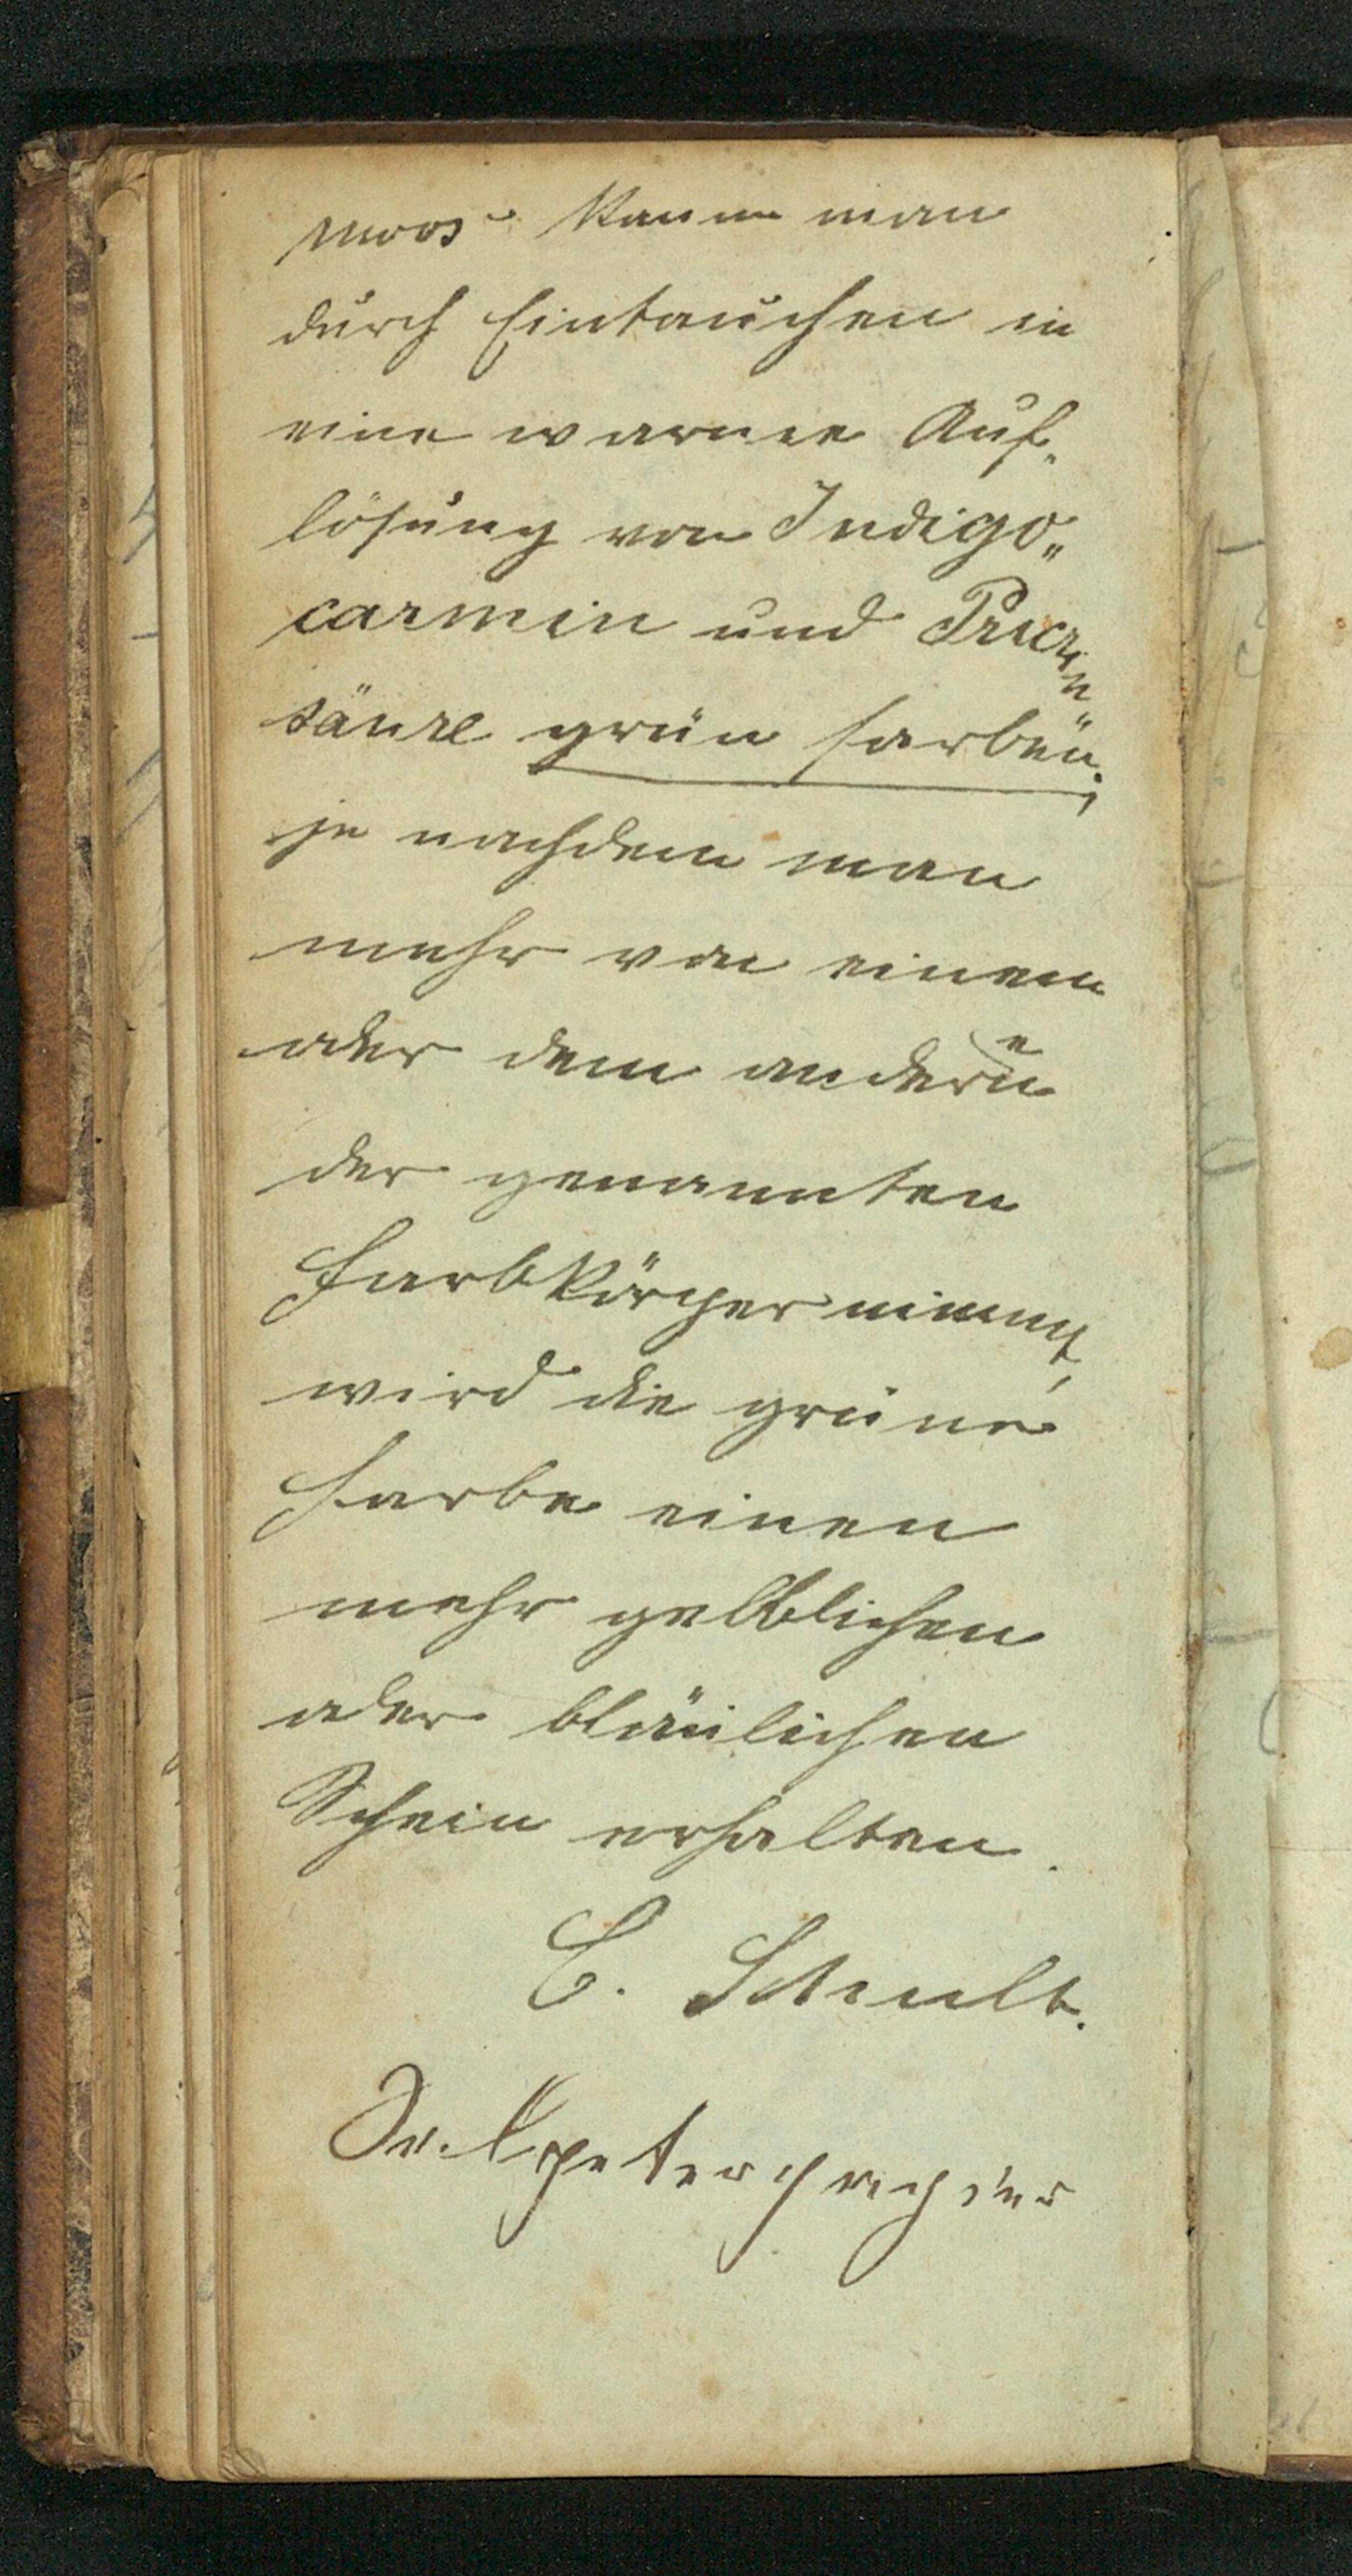 moos kann man
durch Eintauchen in
eine warme Auf„
lösung von Indigo„
carmin und Pikrin„
säure grün farben,
je nachdem man
mehr von einem
oder dem anderen
der genannten
Farbkörper nimmt,
wird die grüne
Farbe einen
mehr gelblichen
oder bläulichen
Schein erhalten.
C.
Salpeterpapier